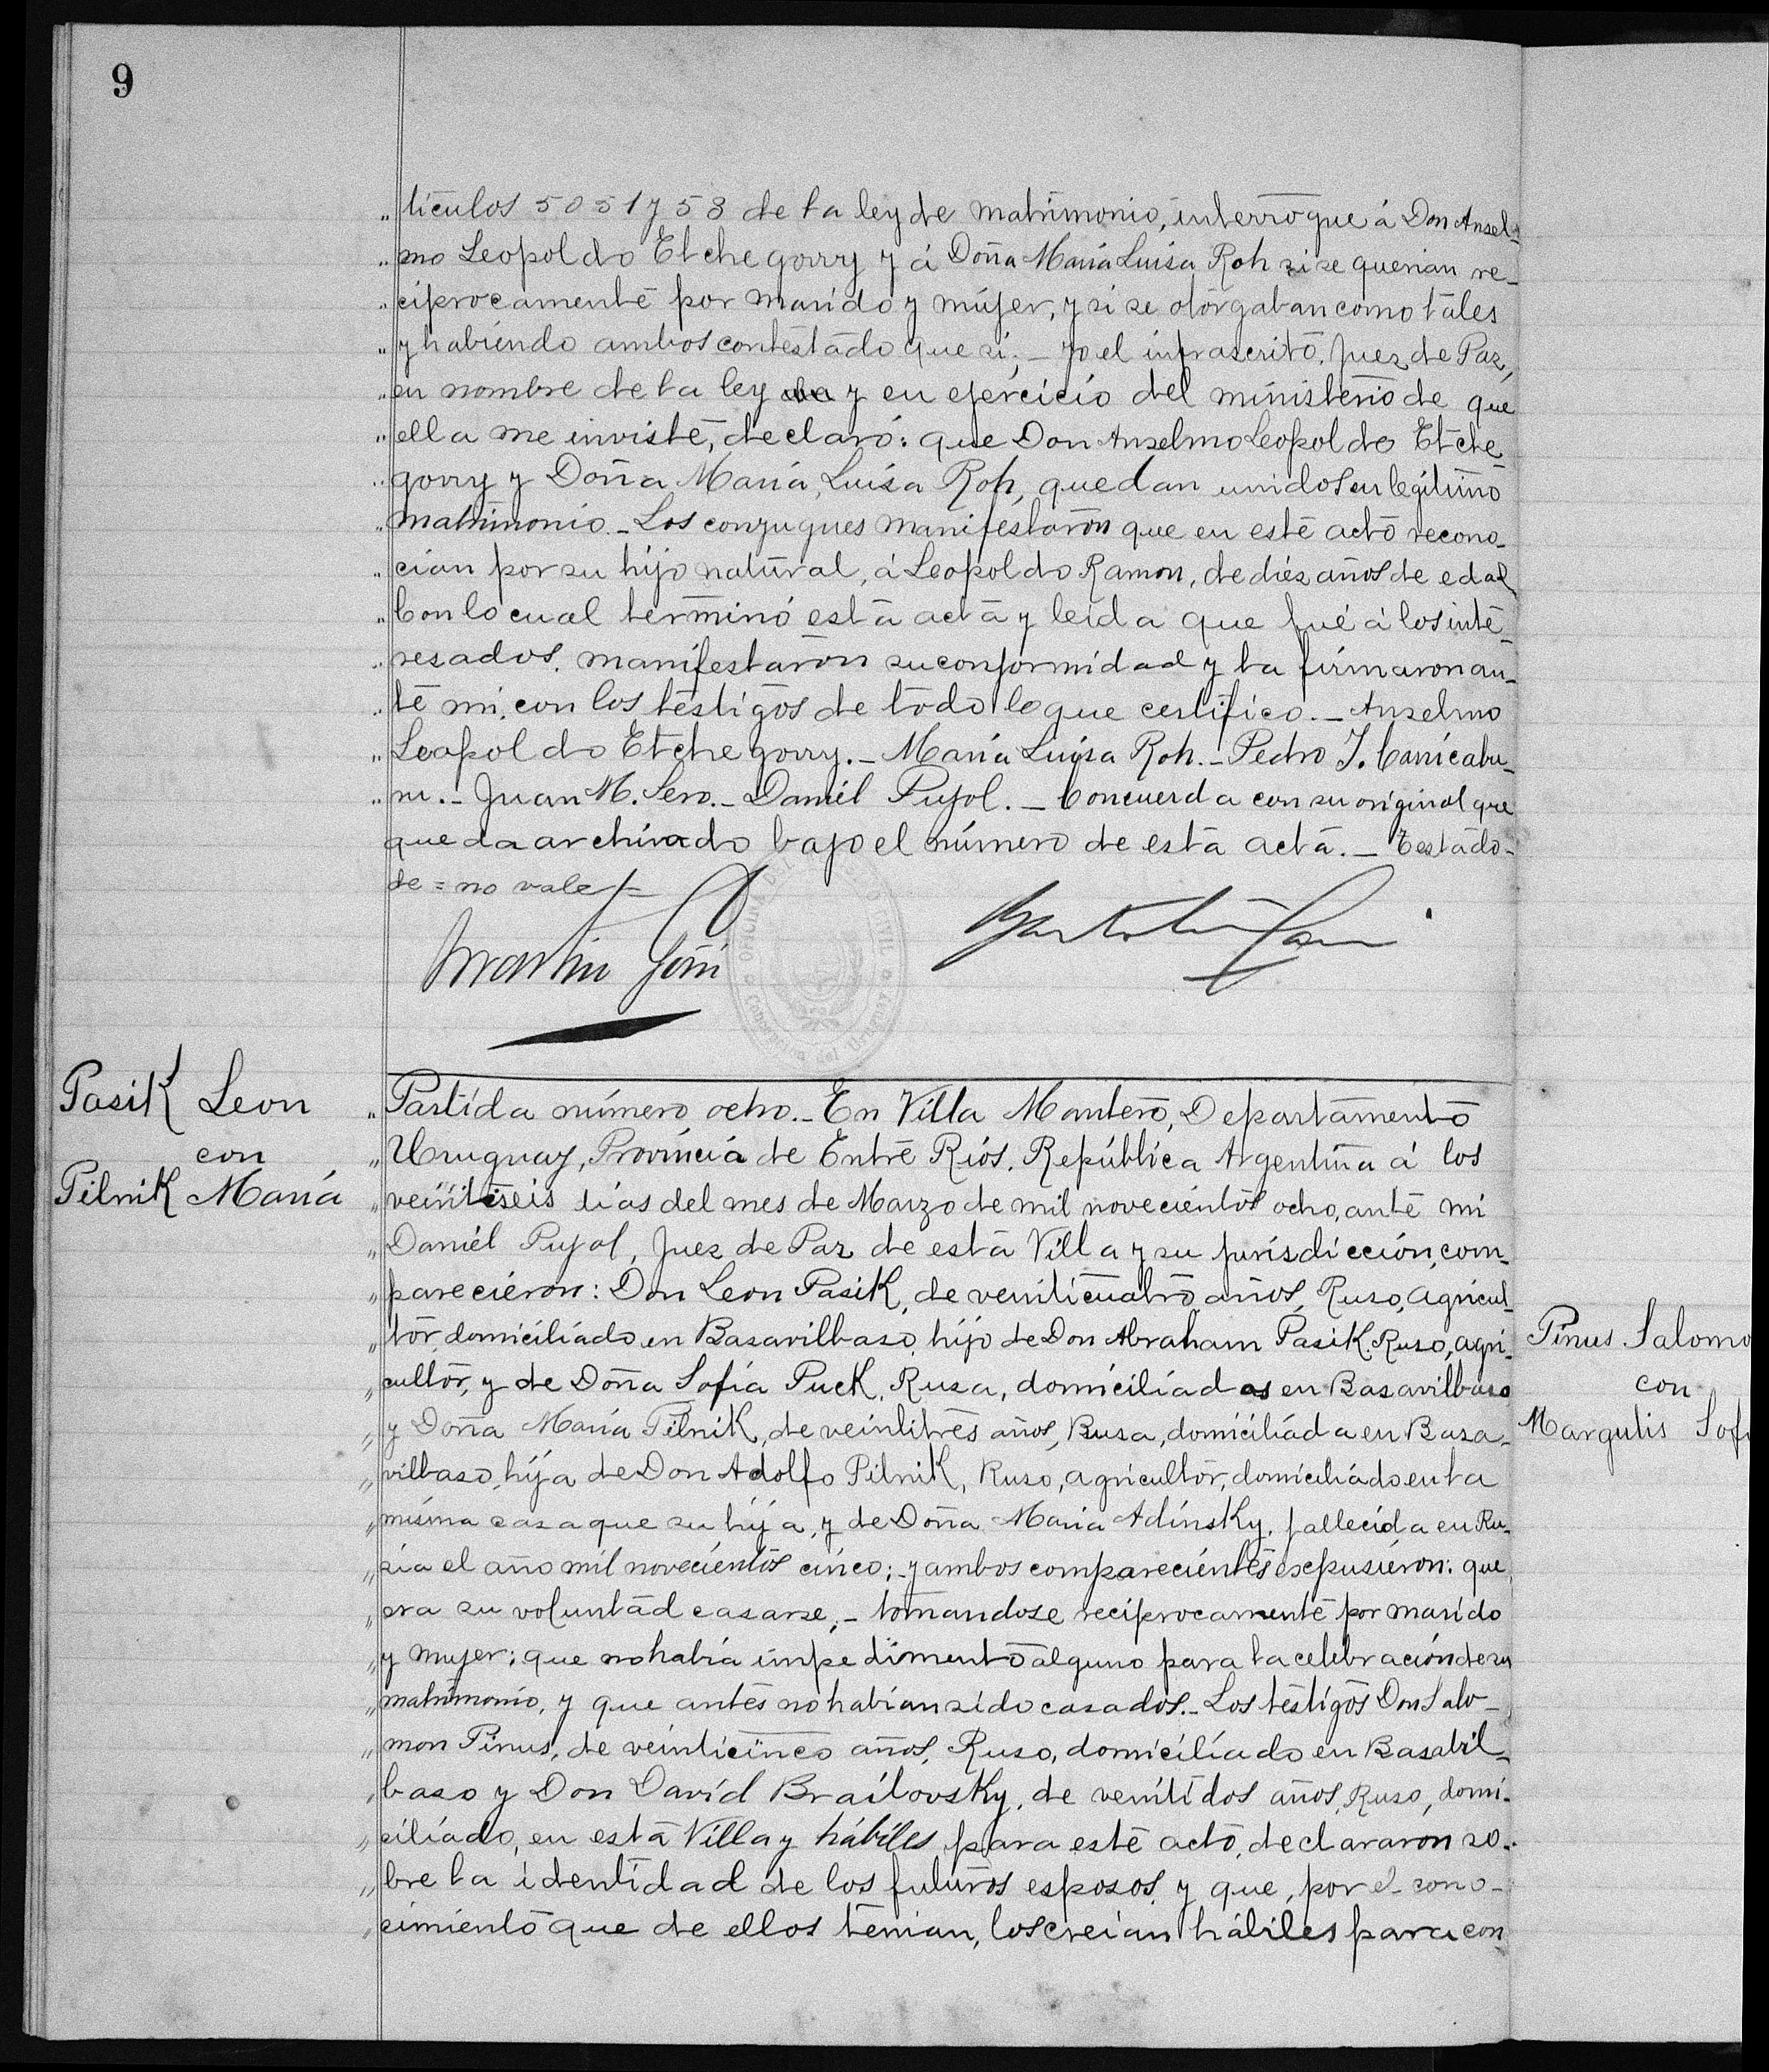 9
tículos 50 51 y 58 de la ley de matrimonio, interroque á Don Ansel-
mo Leopoldo Etchegorry y á Doña María Luisa Roh si se querian re-
ciprocamente por marido y mujer, y si se otorgaban como tales
y habiendo ambos contestado que si; - yo el infrascrito. Juez de Paz,
en nombre de la ley de y en ejercicio del ministerio de que
ella me inviste, declaró: que Don Anselmo Leopoldo Etche
gorry y Doña María, Luisa Roh, quedan unidos en legítimo
matrimonio. - Los conyugues manifestaron que en este acto recono-
cian por su hijo natural, á Leopoldo Ramon, de diez años de edad
Con lo cual terminó esta acta y leida que fué á los inte-
resados. manifestaron su conformidad y la firmaron an-
te mi. con los testigos de todo lo que certifico. - Anselmo
Leopoldo Etchegorry. - María Luisa Roh. - Pedro J. Carricabu-
ru. - Juan M. Sero. - Daniel Pujol. - Concuerda con su original que
queda archivado bajo el número de esta acta. - Testado-
de = no vale
Martin Goñi
OFICINA DEL CIVIL
Concepcion del Uruguay
Pasik Leon
con
Pilnik María
Partida número ocho. - En Villa Mantero, Departamento
Uruguay, Provincia de Entre Ríos. República Argentina á los
veintiseis dias del mes de Marzo de mil novecientos ocho, ante mi
Daniel Pujol, Juez de Paz de esta Villa y su jurisdicción, com-
parecieron: Don Leon Pasik, de venticuatro años, Ruso, agricul-
tor, domiciliado en Basavilbaso, hijo de Don Abraham Pasik. Ruso, agri-
cultor, y de Doña Sofia Puck, Rusa, domiciliados en Basavilbaso
y Doña María Pilnik, de veintitres años, Rusa, domiciliada en Basa-
vilbaso, hija de Don Adolfo Pilnik, Ruso, agricultor, domiciliado en la
misma casa que su hija, y de Doña Maria Adinsky, fallecida en Ru-
sia el año mil novecientos cinco; - y ambos comparecientes expusieron: que
era su voluntad casarse, - tomandose reciprocamente por marido
y mujer; que no habia impedimento alguno para la celebración de su
matrimonio, y que antes no habian sido casados. - Los testigos Don Salo-
mon Pinus, de veinticinco años, Ruso, domiciliado en Basabil-
baso y Don David Brailovsky, de ventidos años, Ruso, domi-
ciliado, en esta Villa y hábiles para este acto, declararon so-
bre la identidad de los futuros esposos, y que, por el cono-
cimiento que de ellos tenian, los creian hábiles para con
Pinus Salomo
con
Margulis Sofi